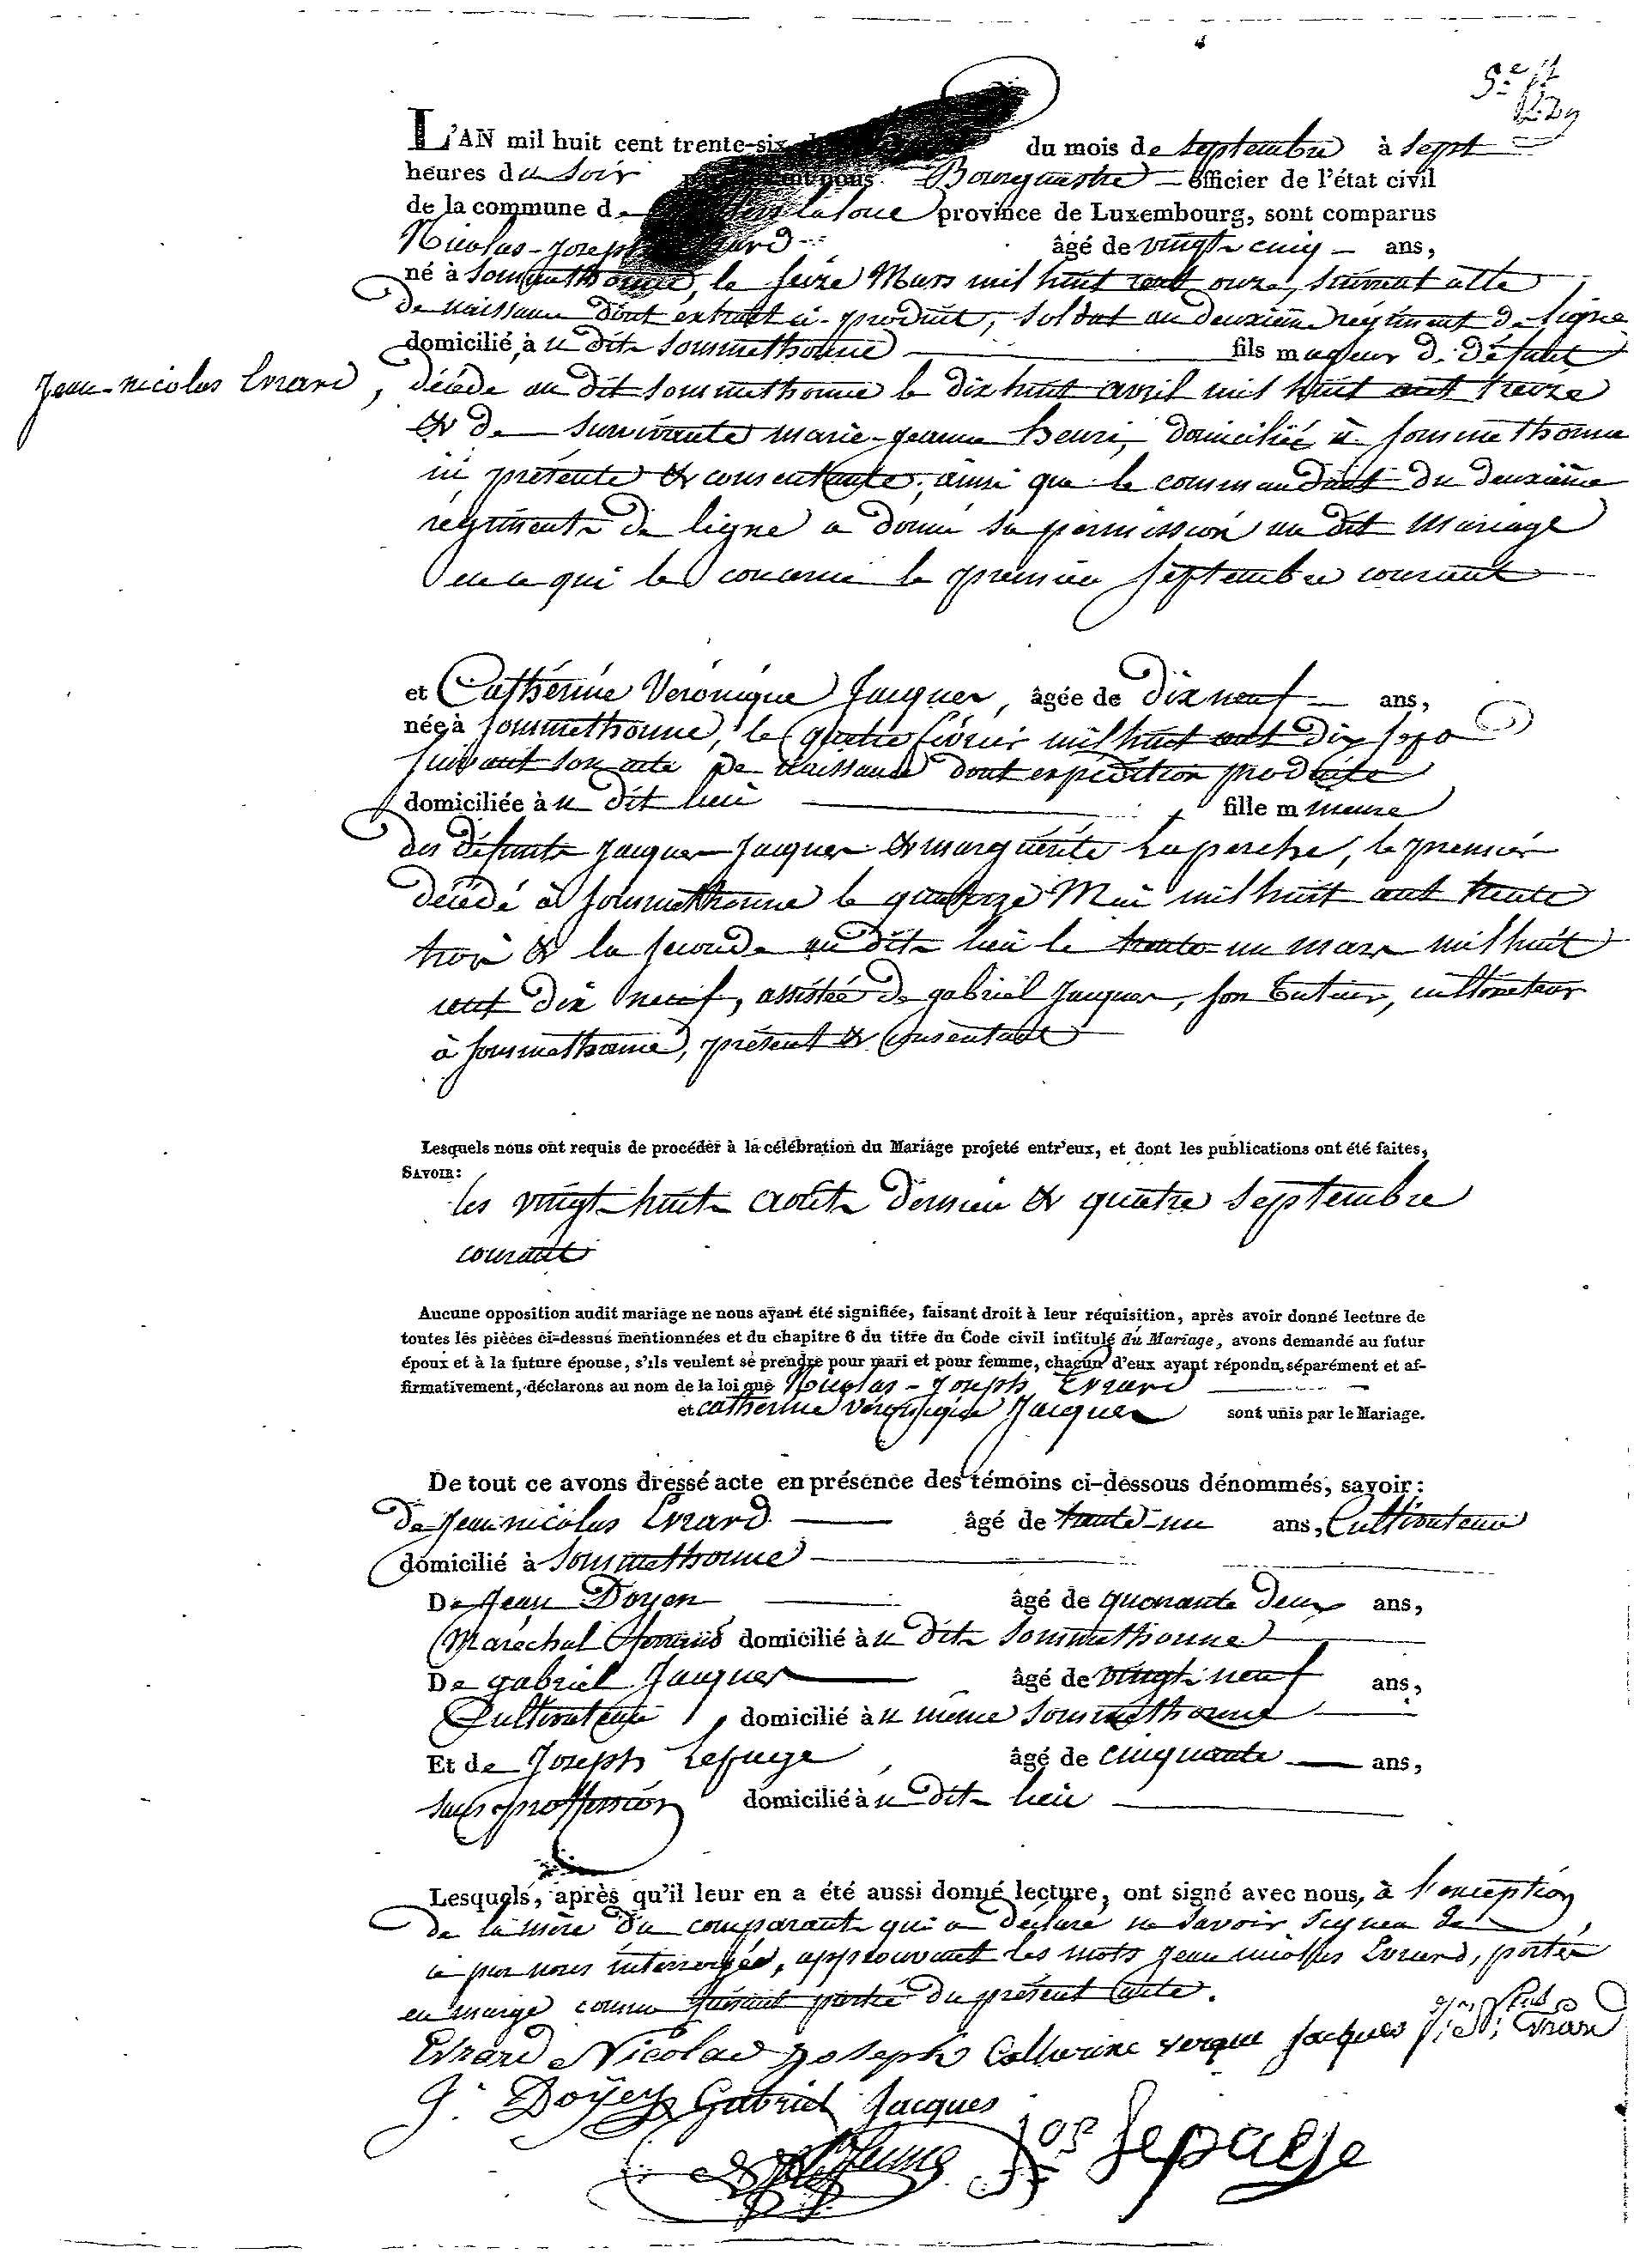 L'AN mil huit cent trente-six du mois de Septembre à Sept
heures du Soir Bourguestre officier de l'état civil
de la commune de latour province de Luxembourg, sont comparus
Nicolas-Joseph âgé de vingt cinq ans,
né à Sommethonne, le seize Mars mil huit cent onze, suivant acte
de naissance dont extrait ci-produit, Soldat au deuxième régiment de ligne
domicilié à u dit Sommethonne fils majeur de défunt
Jean-nicolas Evrard, décédé au dit Sommethonne le dix huit avril mil huit cent treize
& de survivante marie-jeanne henri, domiciliée à Sommethonne
ici présente & consentante; ainsi que le commandant du deuxième
régiment de ligne a donné sa permission au dit Mariage
en ce qui le concerne le premier Septembre courant
et Cathérine Véronique Jacques, âgée de Dix neuf ans,
née à Sommethonne, le quatre février mil huit cent dix sept
suivant son acte de naissance dont expédition produite
domiciliée à u dit lieu fille mineure
des défunts Jacques Jacques & marguérite Laperche, le premier
décédé à Sommethonne le quatorze Mai mil huit cent trente
trois & la seconde au dit lieu le trente-un mars mil huit
cent dix neuf, assistée de gabriel Jacques, son tuteur, cultivateur
à Sommethonne, présent & consentant
Lesquels nous ont requis de procéder à la célébration du Mariage projeté entr'eux, et dont les publications ont été faites,
SAVOIR:
les vingt-huit août dernier & quatre Septembre
courant
Aucune opposition audit mariage ne nous ayant été signifiée, faisant droit à leur réquisition, après avoir donné lecture de
toutes les pièces ci-dessus mentionnées et du chapitre 6 du titre du Code civil intitulé du Mariage, avons demandé au futur
époux et à la future épouse, s'ils veulent se prendre pour mari et pour femme, chacun d'eux ayant répondu séparément et af-
firmativement, déclarons au nom de la loi que Nicolas-Joseph Evrard
et catherine véronique Jacques sont unis par le Mariage.
De tout ce avons dressé acte en présence des témoins ci-dessous dénommés, savoir:
De Jean nicolas Evrard âgé de trente-un ans, Cultivateur
domicilié à Sommethonne
De Jean Doyen âgé de quarante deux ans,
Maréchal ferrand domicilié à u dit Sommethonne
De gabriel Jacques âgé de vingt-neuf ans,
Cultivateur domicilié à u même Sommethonne
Et de Joseph Lepage âgé de cinquante ans,
sans proffession domicilié à u dit lieu
Lesquels, après qu'il leur en a été aussi donné lecture, ont signé avec nous, à l'exception
de la mère du comparant qui a déclaré ne savoir signer de
ce par nous interrogée, approuvant les mots Jean nicolas Evrard, portés
en marge comme faisant partie du présent acte.
Evrard Nicolas Joseph Catherine verque Jacques J: N: Evrard
J. Doyen Gabriel Jacques
Jos Lepage